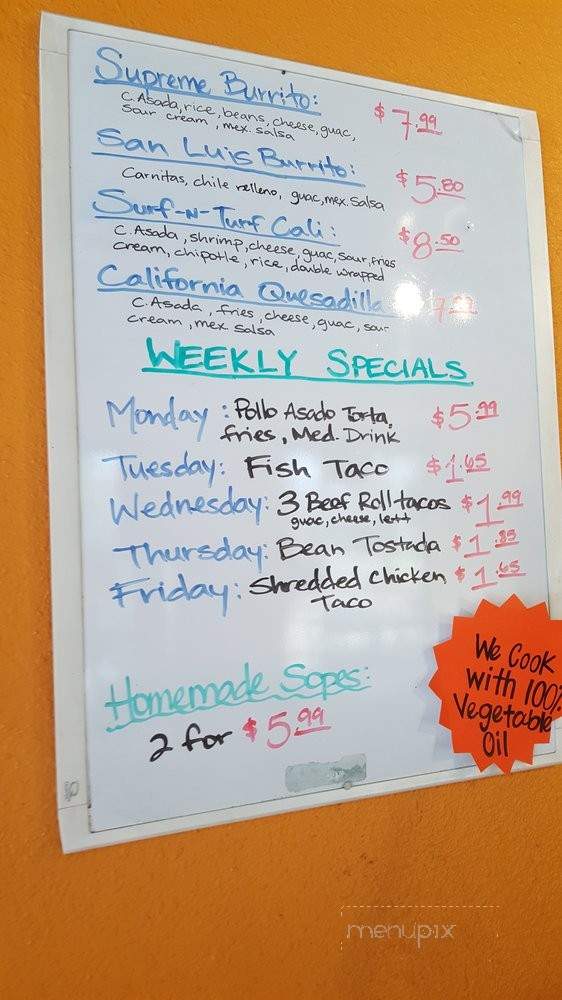 Supreme Burrito: $7.99
C. Asada, rice, beans, cheese, guac,
Sour cream, mex. salsa
San Luis Burrito: $5.80
Carnitas, chile relleno, guac, mex. Salsa
Surf-N-Turf Cali: $8.50
C. Asada, shrimp, cheese, guac, sour, fries
cream, chipotle, rice, double wrapped
California Quesadilla
C. Asada, fries, cheese, guac, sour
cream, mex salsa
WEEKLY SPECIALS
Monday: Pollo Asado Torta, $5.99
fries, Med. Drink
Tuesday: Fish Taco $1.65
Wednesday: 3 Beef Roll tacos $1.99
guac, cheese, lett
Thursday: Bean Tostada $1.85
Friday: Shredded Chicken $1.65
Taco
Homemade Sopes:
2 for $5.99
We Cook
with 100%
Vegetable
Oil
menupix